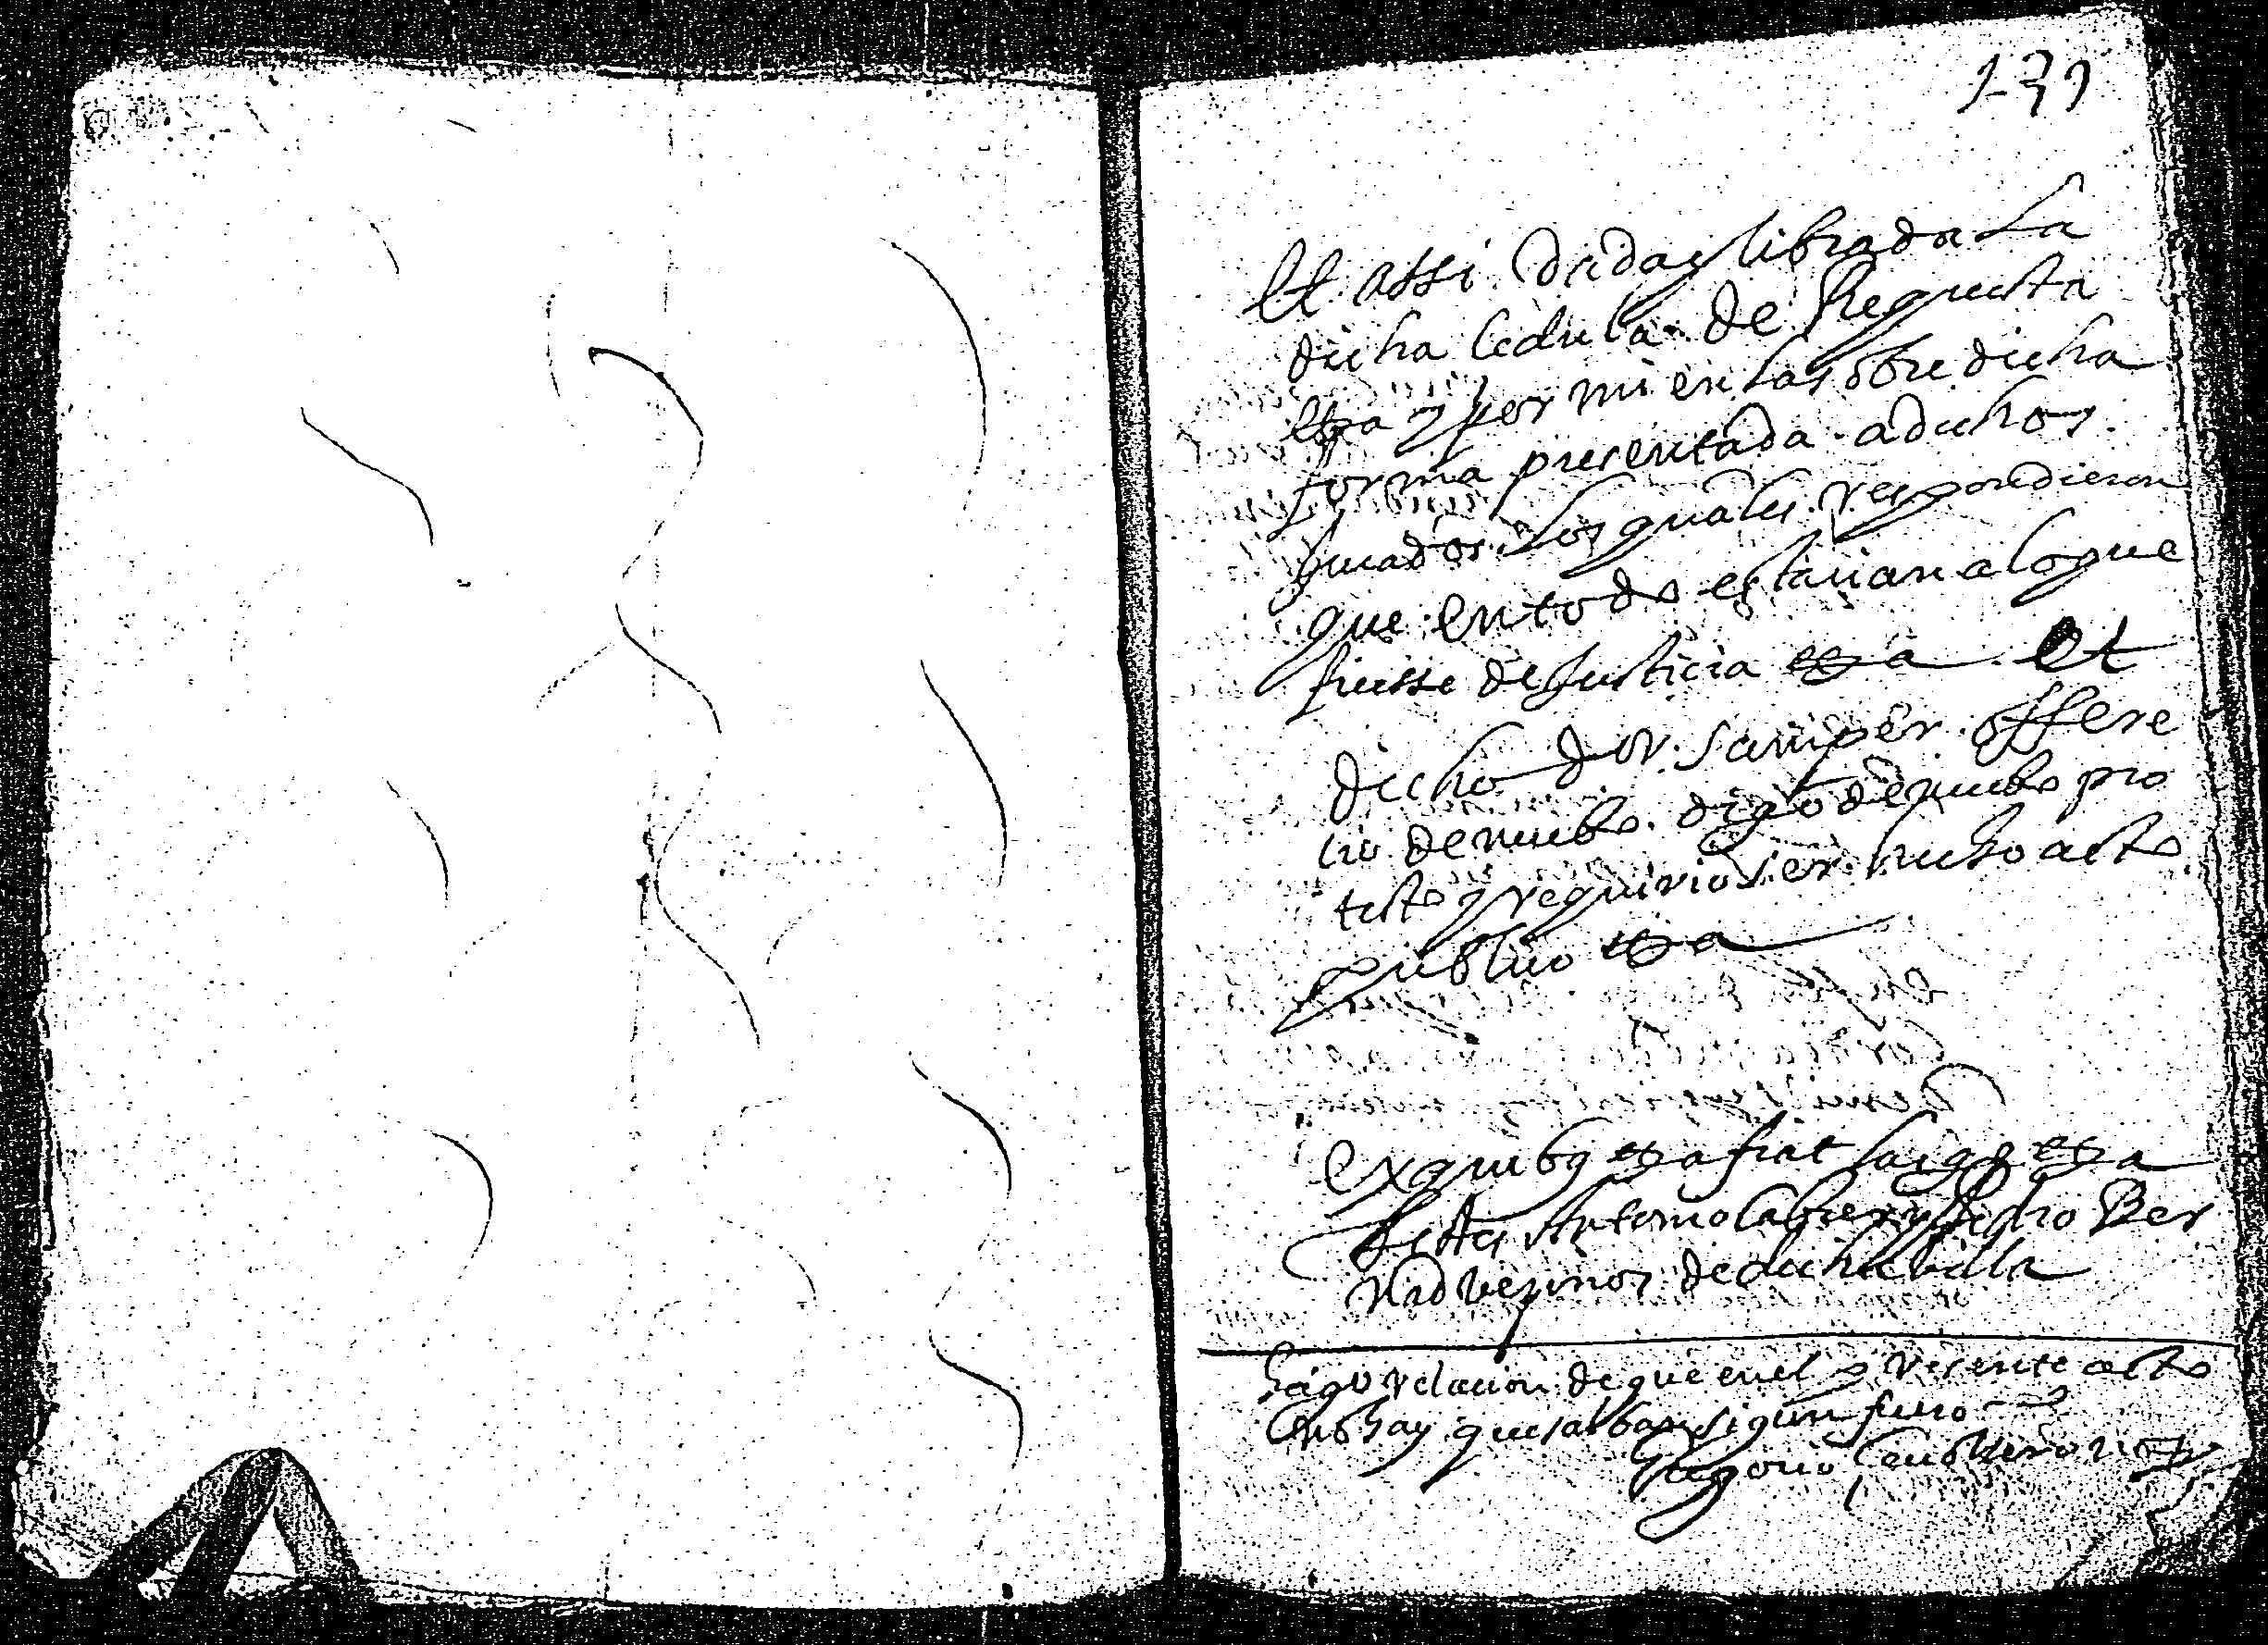 171
Et assi dada y librada la
dicha cedula de Requesta
etta y por mi en la sobredicha
forma presentada a dichos
Jurados los quales respondieron
que en todo estarian a lo que
fuesse de Justicia etta Et
dicho dor Samper offere
cio de nuebo digo de nuebo pro
testo y requirio ser hecho acto
publico etta
Ex quibus etta fiat large etta
Testes Antonio y Pedro Ber
nad vezinos de dicha billa
Hago relacion de que en el presente acto
no hay que salbar sigun fuero
Gregorio not